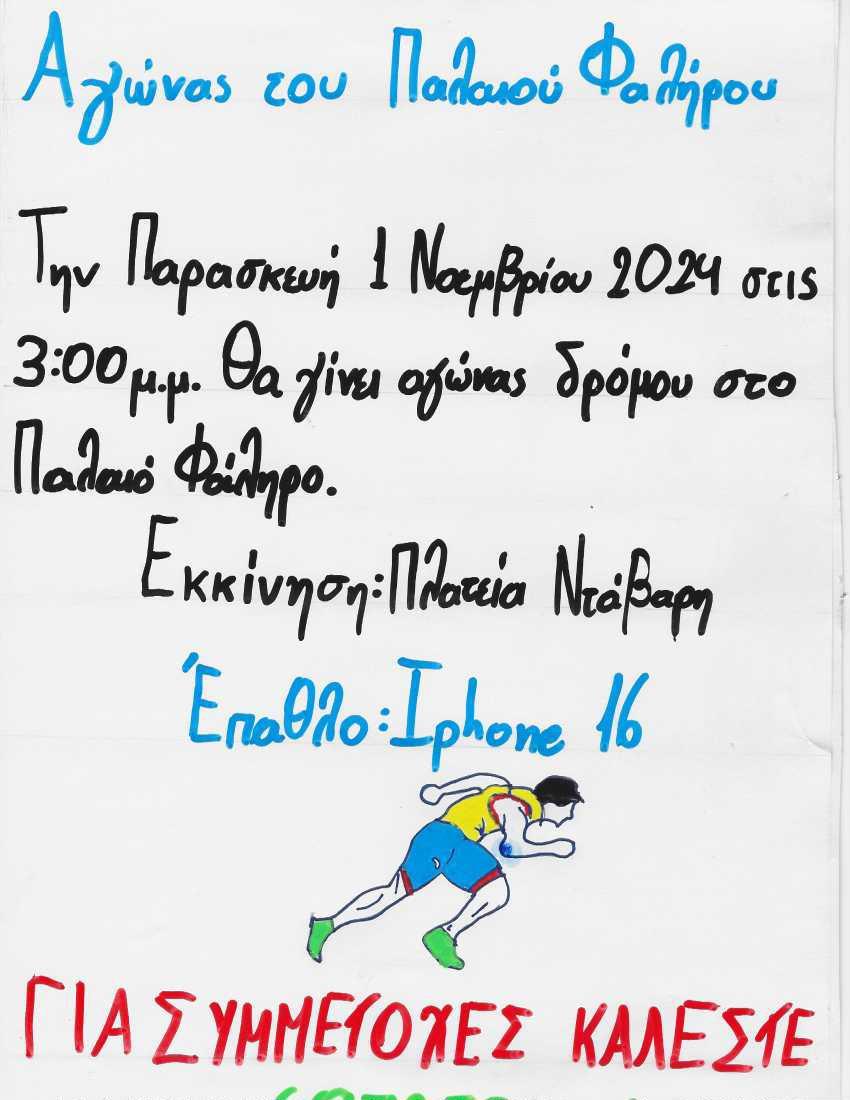 Αγώνας του Παλαιού Φαλήρου
Την Παρασκευή 1 Νοεμβρίου 2024 στις
3:00 μ.μ. Θα γίνει αγώνας δρόμου στο
Παλαιό Φάληρο.
Εκκίνηση: Πλατεία Ντάβαρη
Έπαθλο: Iphone 16
ΓΙΑ ΣΥΜΜΕΤΟΧΕΣ ΚΑΛΕΣΤΕ